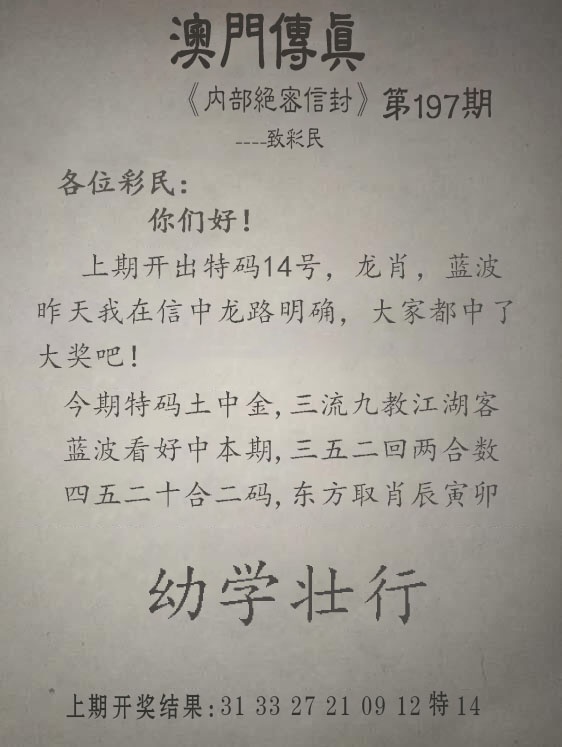 澳門傳眞
《内部絕密信封》第197期
----致彩民
各位彩民:
你们好!
上期开出特码14号，龙肖，蓝波
昨天我在信中龙路明确，大家都中了
大奖吧!
今期特码土中金,三流九教江湖客
蓝波看好中本期,三五二回两合数
四五二十合二码,东方取肖辰寅卯
幼学壮行
上期开奖结果:31 33 27 21 09 12特14